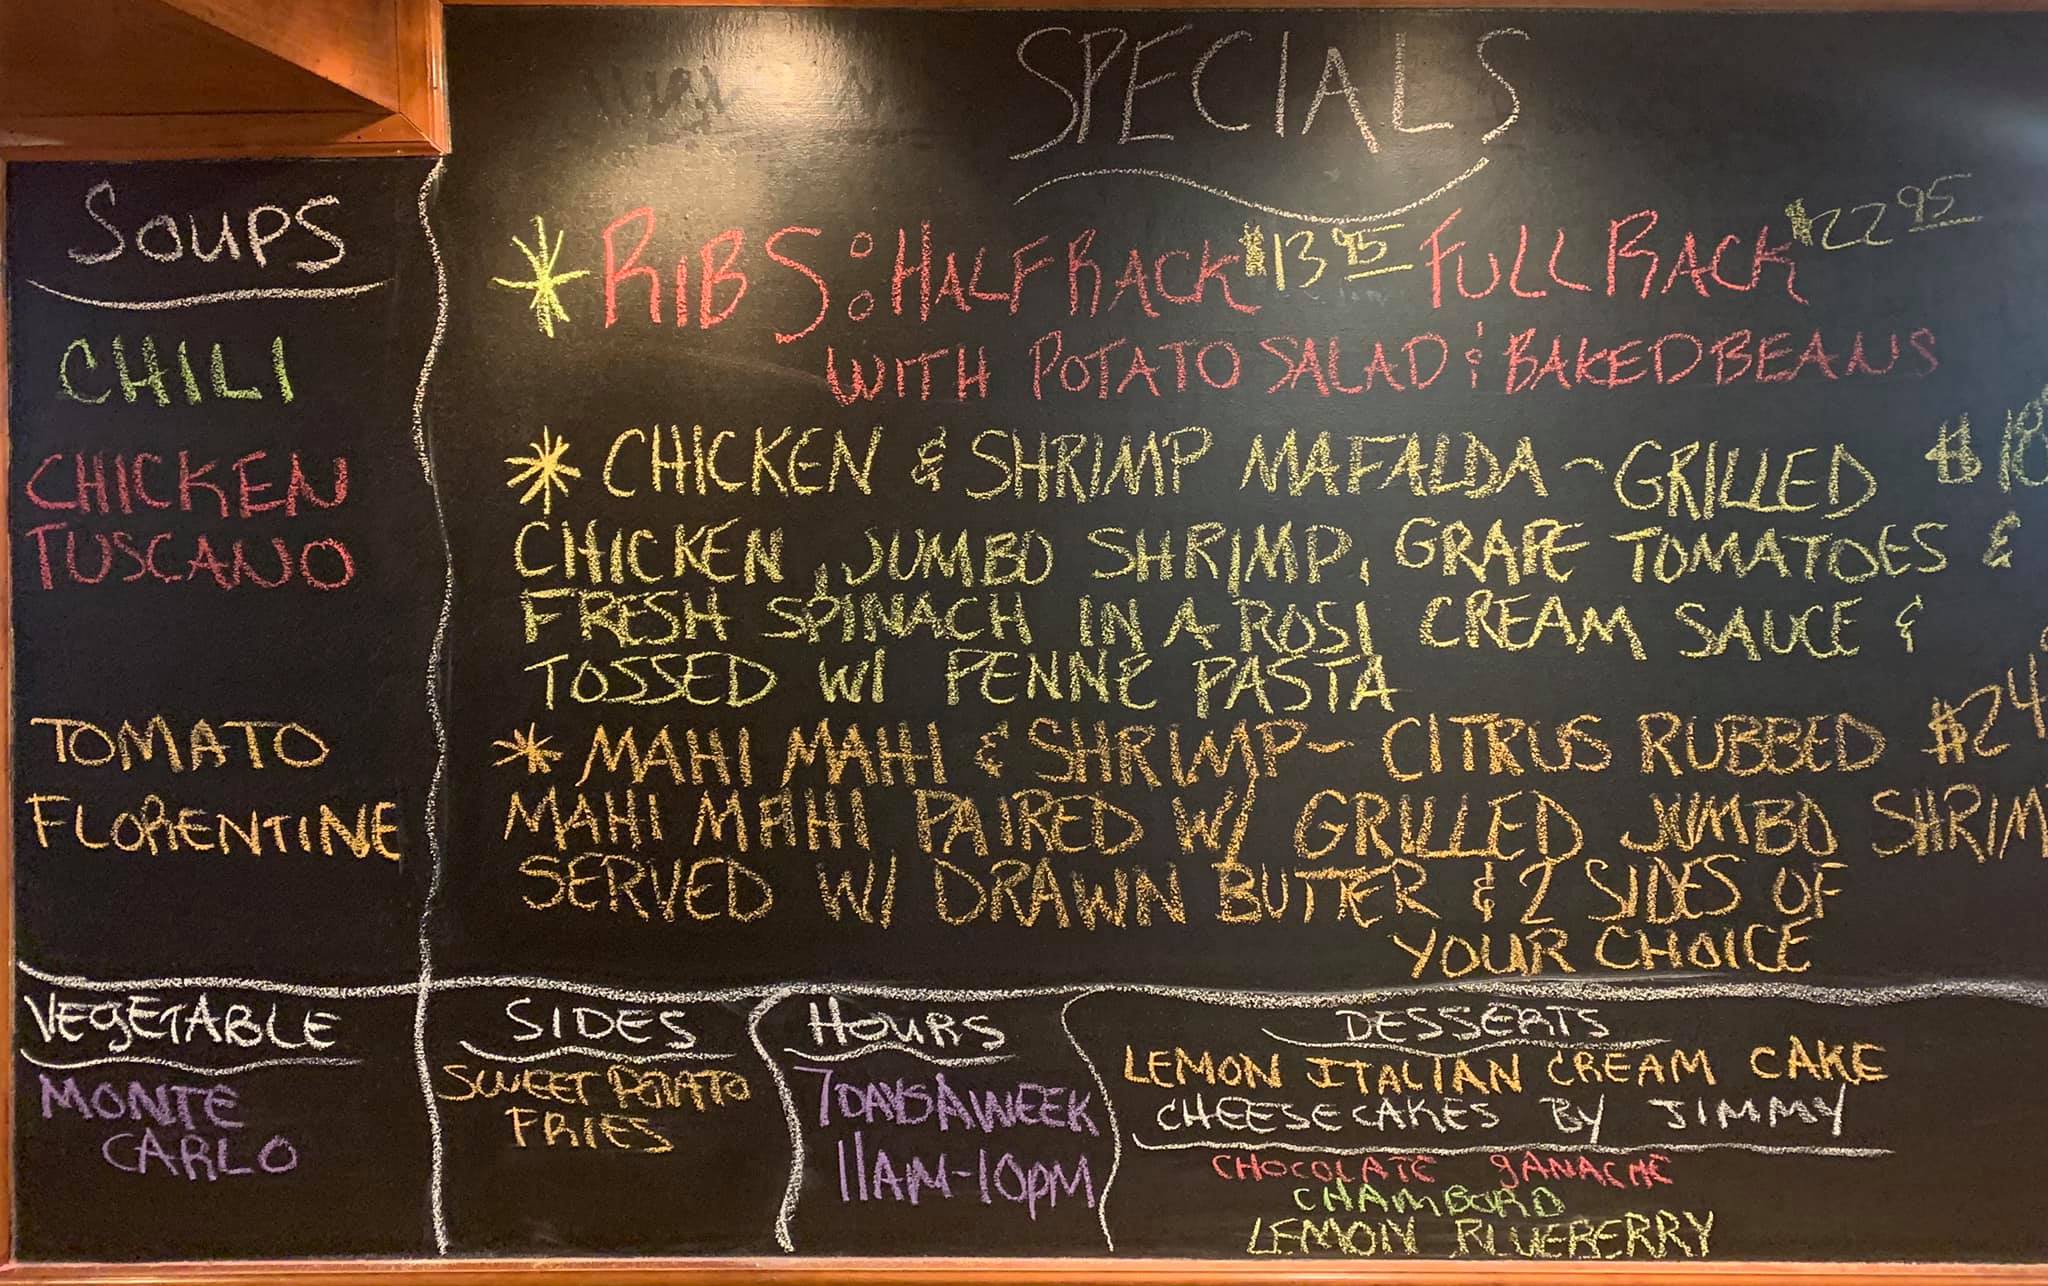 SPECIALS
SOUPS
CHILI
CHICKEN
TUSCANO
TOMATO
FLORENTINE
* RIBS: HALF RACK $13 95 FULL RACK $22 95
WITH POTATO SALAD & BAKED BEANS
* CHICKEN & SHRIMP MAFALDA ~ GRILLED
CHICKEN, JUMBO SHRIMP, GRAPE TOMATOES &
FRESH SPINACH IN A ROSI CREAM SAUCE &
TOSSED W/ PENNE PASTA
* MAHI MAHI & SHRIMP ~ CITRUS RUBBED $24
MAHI MAHI PAIRED W/ GRILLED JUMBO SHRIM
SERVED W/ DRAWN BUTTER & 2 SIDES OF
YOUR CHOICE
VEGETABLE
MONTE
CARLO
SIDES
SWEET POTATO
FRIES
HOURS
7 DAYS A WEEK
11AM-10PM
DESSERTS
LEMON ITALIAN CREAM CAKE
CHEESECAKES BY JIMMY
CHOCOLATE GANACHE
CHAMBORD
LEMON BLUEBERRY